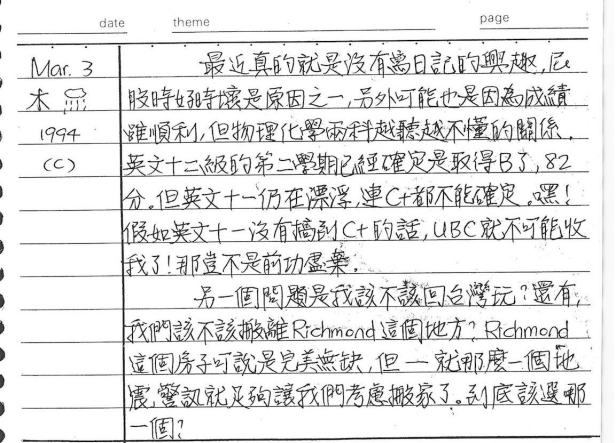 date theme page
Mar. 3 最近真的就是沒有寫日記的興趣,屁
木 股時好時壞是原因之一,另外可能也是因為成績
1994 雖順利,但物理化學兩科越聽越不懂的關係.
(C) 英文十二級的第二學期已經確定是取得B了,82
分.但英文十一仍在漂浮,連C+都不能確定。嘿!
假如英文十一沒有搞到C+的話,UBC就不可能收
我了!那豈不是前功盡棄.
另一個問題是我該不該回台灣玩?還有,
我們該不該搬離Richmond這個地方?Richmond
這個房子可說是完美無缺,但一就那麼一個地
震警訊就足夠讓我們考慮搬家了。到底該選哪
一個?